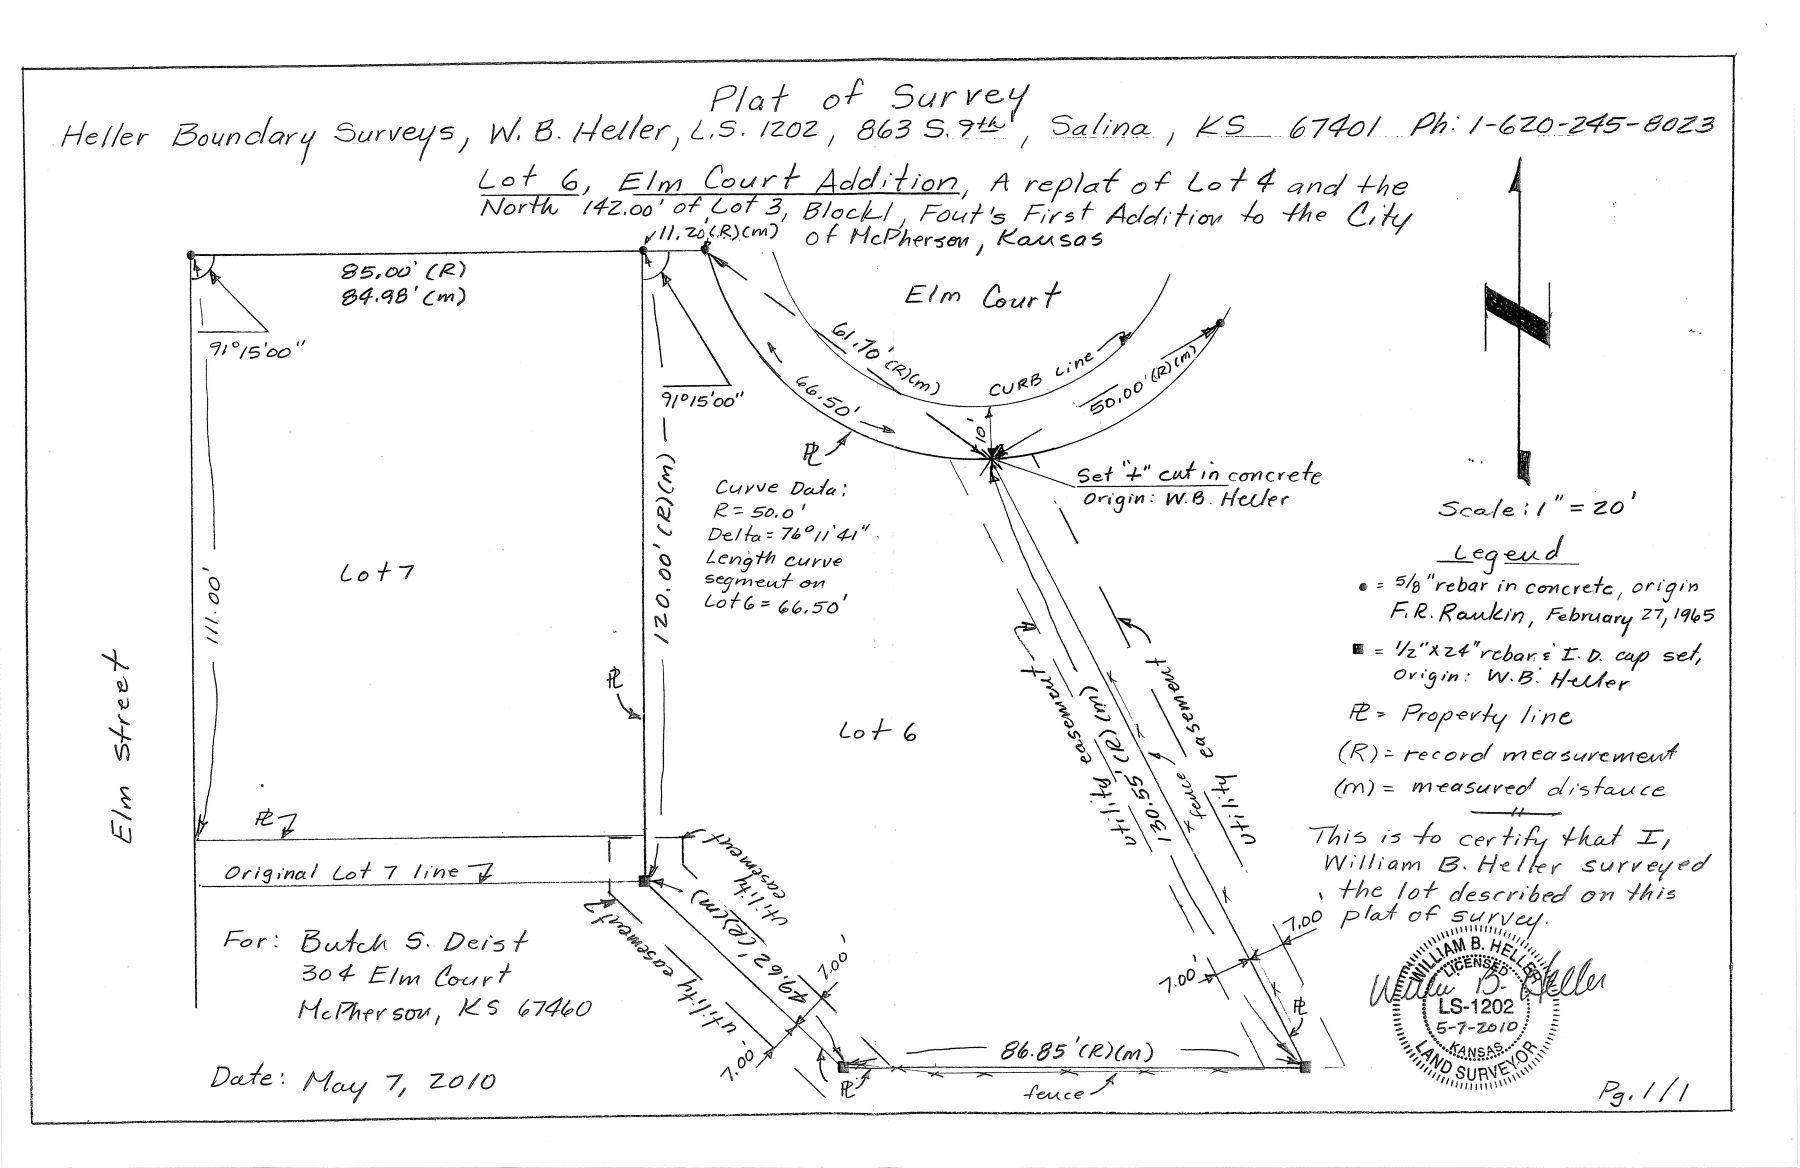 Plat of Survey
Heller Boundary Surveys, W. B. Heller, L.S. 1202, 863 S. 9th, Salina, KS 67401 Ph: 1-620-245-8023
Lot 6, Elm Court Addition, A replat of Lot 4 and the
North 142.00' of Lot 3, Block 1, Fout's First Addition to the City
of McPherson, Kansas
11.20'(R)(m)
85.00' (R)
84.98' (m)
91°15'00"
91°15'00"
Elm Court
61.70' (R)(m)
66.50'
CURB Line
50.00' (R)(m)
10'
PL
Set "+" cut in concrete
Origin: W.B. Heller
Curve Data:
R = 50.0'
Delta = 76°11'41"
Length curve
segment on
Lot 6 = 66.50'
120.00' (R)(m)
111.00'
Lot 7
Elm Street
PL
Lot 6
PL
Original Lot 7 line
utility easement
utility easement
49.62' (R)(m)
7.00'
7.00'
PL
86.85' (R)(m)
fence
PL
utility easement
130.55' (R)(m)
fence
utility easement
7.00
7.00'
PL
For: Butch S. Deist
304 Elm Court
McPherson, KS 67460
Date: May 7, 2010
Scale: 1" = 20'
Legend
= 5/8" rebar in concrete, origin
F.R. Rankin, February 27, 1965
= 1/2" x 24" rebar & I.D. cap set,
Origin: W.B. Heller
PL = Property line
(R) = record measurement
(m) = measured distance
This is to certify that I,
William B. Heller surveyed
the lot described on this
plat of survey.
William B. Heller
WILLIAM B. HELLER
LICENSED
LS-1202
5-7-2010
KANSAS
LAND SURVEYOR
Pg. 1/1